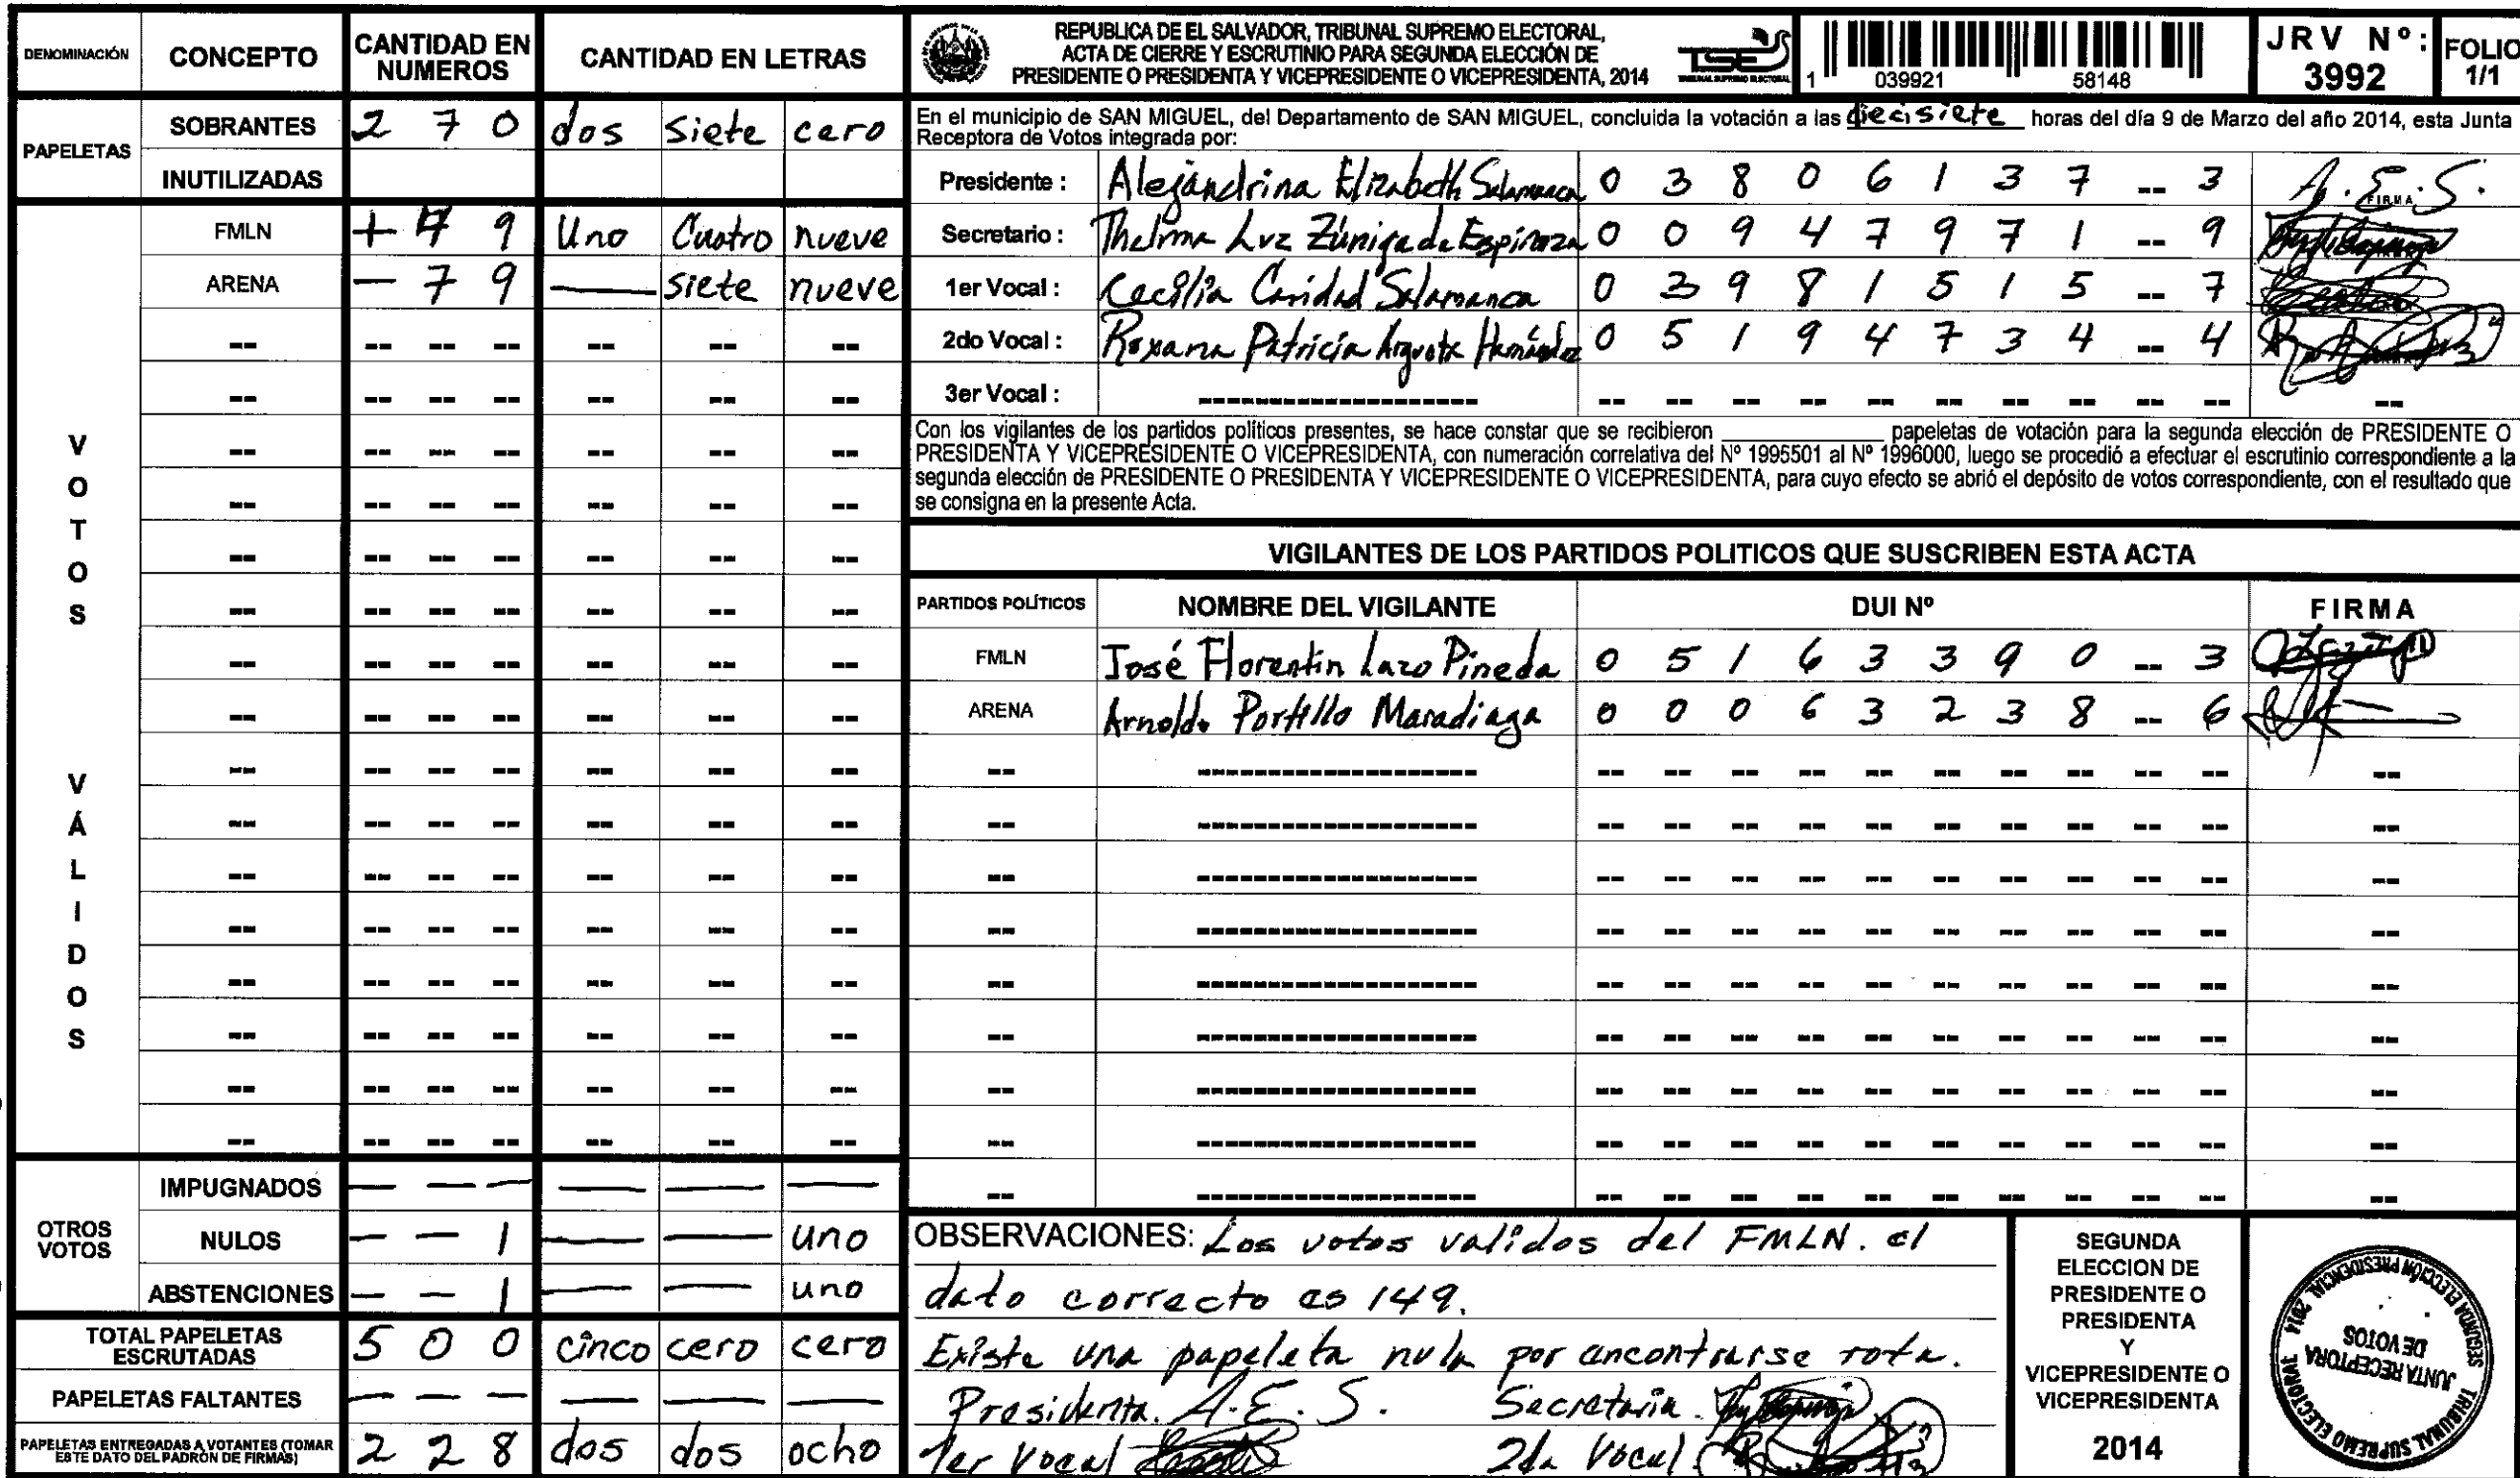 DENOMINACIÓN CONCEPTO CANTIDAD EN NUMEROS CANTIDAD EN LETRAS
PAPELETAS
SOBRANTES 2 7 0 dos siete cero
INUTILIZADAS
VOTOS VÁLIDOS
FMLN 4 9 Uno Cuatro nueve
ARENA — 7 9 — siete nueve
OTROS VOTOS
IMPUGNADOS — — — — — —
NULOS — — 1 — — uno
ABSTENCIONES — — 1 — — uno
TOTAL PAPELETAS ESCRUTADAS 5 0 0 cinco cero cero
PAPELETAS FALTANTES — — — — — —
PAPELETAS ENTREGADAS A VOTANTES (TOMAR ESTE DATO DEL PADRÓN DE FIRMAS) 2 2 8 dos dos ocho
REPUBLICA DE EL SALVADOR, TRIBUNAL SUPREMO ELECTORAL,
ACTA DE CIERRE Y ESCRUTINIO PARA SEGUNDA ELECCIÓN DE
PRESIDENTE O PRESIDENTA Y VICEPRESIDENTE O VICEPRESIDENTA, 2014
TSE
TRIBUNAL SUPREMO ELECTORAL
1 039921 58148
JRV Nº: 3992
FOLIO 1/1
En el municipio de SAN MIGUEL, del Departamento de SAN MIGUEL, concluida la votación a las diecisiete horas del día 9 de Marzo del año 2014, esta Junta
Receptora de Votos integrada por:
Presidente : Alejandrina Elizabeth Salamanca 0 3 8 0 6 1 3 7 -- 3 A.E.S.
FIRMA
Secretario : Thelma Luz Zúniga de Espinoza 0 0 9 4 7 9 7 1 -- 9
1er Vocal : Cecilia Caridad Salamanca 0 3 9 8 1 5 1 5 -- 7
2do Vocal : Roxana Patricia Argueta Hernández 0 5 1 9 4 7 3 4 -- 4
3er Vocal :
Con los vigilantes de los partidos políticos presentes, se hace constar que se recibieron ________ papeletas de votación para la segunda elección de PRESIDENTE O
PRESIDENTA Y VICEPRESIDENTE O VICEPRESIDENTA, con numeración correlativa del Nº 1995501 al Nº 1996000, luego se procedió a efectuar el escrutinio correspondiente a la
segunda elección de PRESIDENTE O PRESIDENTA Y VICEPRESIDENTE O VICEPRESIDENTA, para cuyo efecto se abrió el depósito de votos correspondiente, con el resultado que
se consigna en la presente Acta.
VIGILANTES DE LOS PARTIDOS POLITICOS QUE SUSCRIBEN ESTA ACTA
PARTIDOS POLÍTICOS NOMBRE DEL VIGILANTE DUI Nº FIRMA
FMLN José Florentin Lazo Pineda 0 5 1 6 3 3 9 0 -- 3
ARENA Arnoldo Portillo Maradiaga 0 0 0 6 3 2 3 8 -- 6
OBSERVACIONES: Los votos validos del FMLN. el
dato correcto es 149.
Existe una papeleta nula por encontrarse rota.
Presidenta. A.E.S. Secretaria.
1er Vocal 2da Vocal
SEGUNDA
ELECCION DE
PRESIDENTE O
PRESIDENTA
Y
VICEPRESIDENTE O
VICEPRESIDENTA
2014
TRIBUNAL SUPREMO ELECTORAL
SEGUNDA ELECCIÓN PRESIDENCIAL 2014
JUNTA RECEPTORA
DE VOTOS